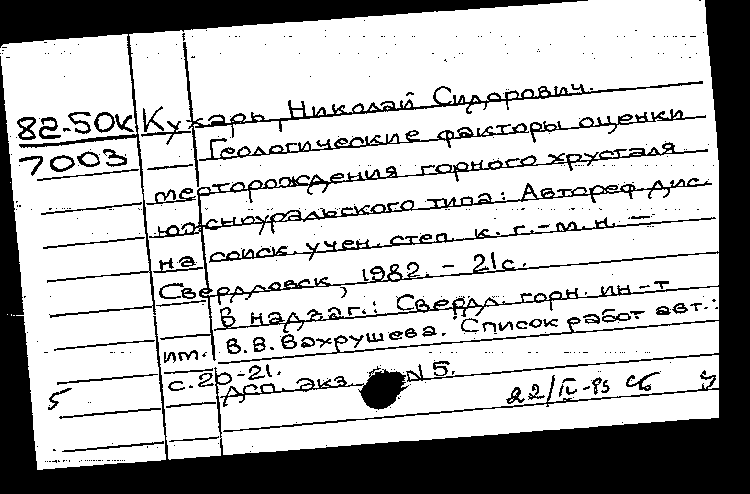 82-50К Кухарь, Николай Сидорович.
7003 Геологические факторы оценки
месторождения горного хрусталя
южноуральского типа: Автореф. дис.
на соиск. учен. степ. к. г.-м. н. —
Свердловск, 1982. - 21с.
В надзаг.: Свердл. горн. ин-т
им. В.В. Вахрушева. Список работ авт.:
с. 20-21.
5 Дсп. экз. N 5.
22/IV-83